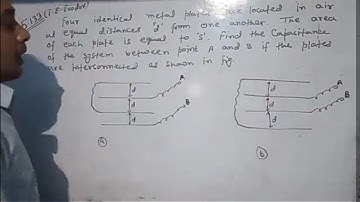 5.133 (I.E. Irodov)
Four identical metal plates are located in air
at equal distances 'd' from one another. The area
of each plate is equal to 's'. Find the Capacitance
of the system between point A and B if the plates
are interconnected as shown in fig.
A
d
B
d
d
A
d
B
d
d
a
b